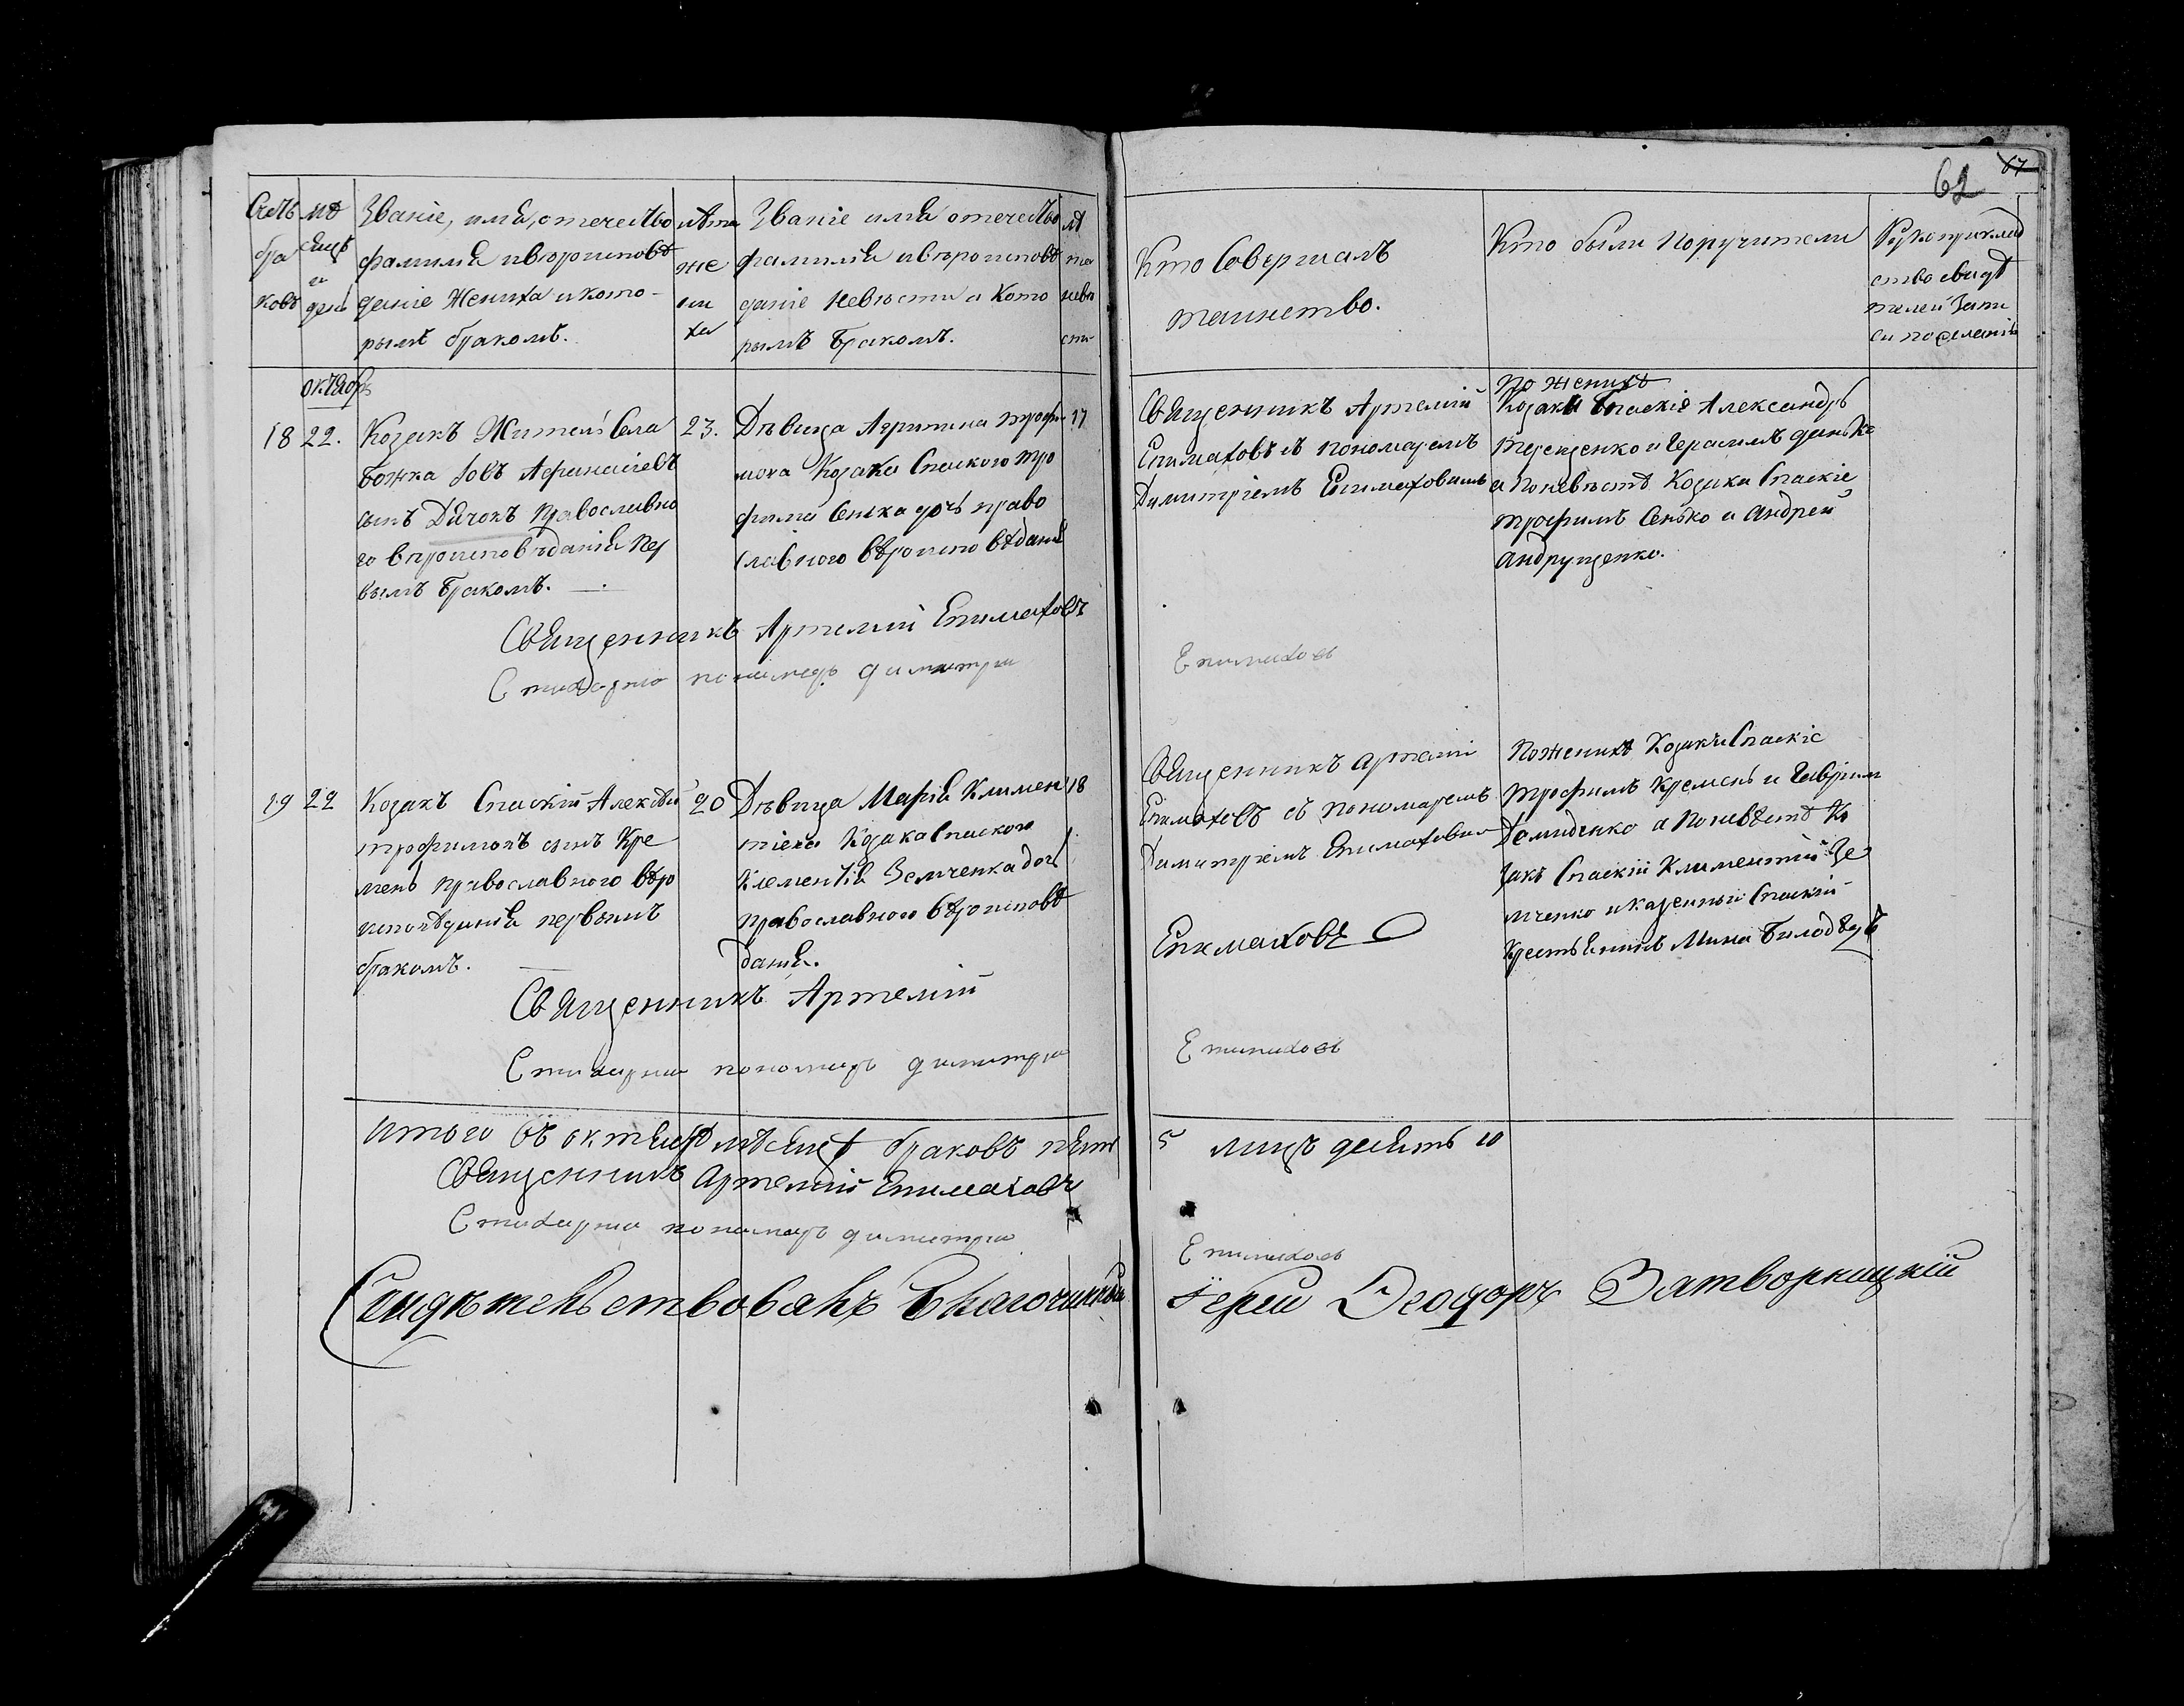 62 67
Счетъ браковъ
Мѣсяцъ и день
Званіе, имя, отечество
фамилія и вѣроисповѣ
даніе Жениха и кото-
рымъ бракомъ.
лѣта
же
ни
ха
Званіе имя отечество
фамилія и вѣроисповѣ
даніе Невѣсти и кото
рымъ бракомъ.
лѣ
та
невѣ
сти
Кто Совершалъ
таинство.
Кто были Поручители
Рукоприклад
ство свидѣ
телей Запи
си по желанію
октябрь
18 22.
Козакъ Житель Села
Божка Іовъ Афанасіевъ
сынъ Дячокъ Православно
го вѣроисповѣданія Пер
вымъ бракомъ.
23.
Дѣвица Агрипина Трофи
мова Козака Спаского Тро
фима Сенька дочь право
славного вѣроисповѣданія
17
Священникъ Артемій
Епимаховъ съ пономаремъ
Димитріемъ Епимаховымъ
По женихѣ
Козаки Спаскіе Александръ
Терещенко и Герасимъ Данько
а по невѣстѣ Козаки Спаскіе
Трофимъ Сенько и Андрей
Андрущенко.
Священникъ Артемій Епимаховъ
Стихарно пономаръ димитри Епимаховъ
19 22
Козакъ Спаскій Алексѣй
трофимовъ сынъ Кре
мень православного вѣро
исповѣданія первымъ
бракомъ.
20
Дѣвица Марія Климен
тіева Козака Спаского
Клементія Земченка дочь
православного вѣроисповѣ
данія.
18
Священникъ Артемій
Епимаховъ съ пономаремъ
Димитріемъ Епимаховимъ
По женихѣ Козаки Спаскіе
Трофимъ Кремень и Гавріилъ
Демиденко а по невѣстѣ Ко
закъ Спаскій Климентій Зе
мченко и казенный Спаскій
Крестьянинъ Мина Билодѣдъ
Священникъ Артемій Епимаховъ
Стихарни пономаръ димитри Епимаховъ
Итого въ октябрѣ мѣсяцѣ браковъ пять 5 лицъ десять 10
Священникъ Артемій Епимаховъ
Стихарни пономаръ димитри Епимаховъ
Свидѣтельствовалъ Благочинный Іерей Ѳеодоръ Затворницкій